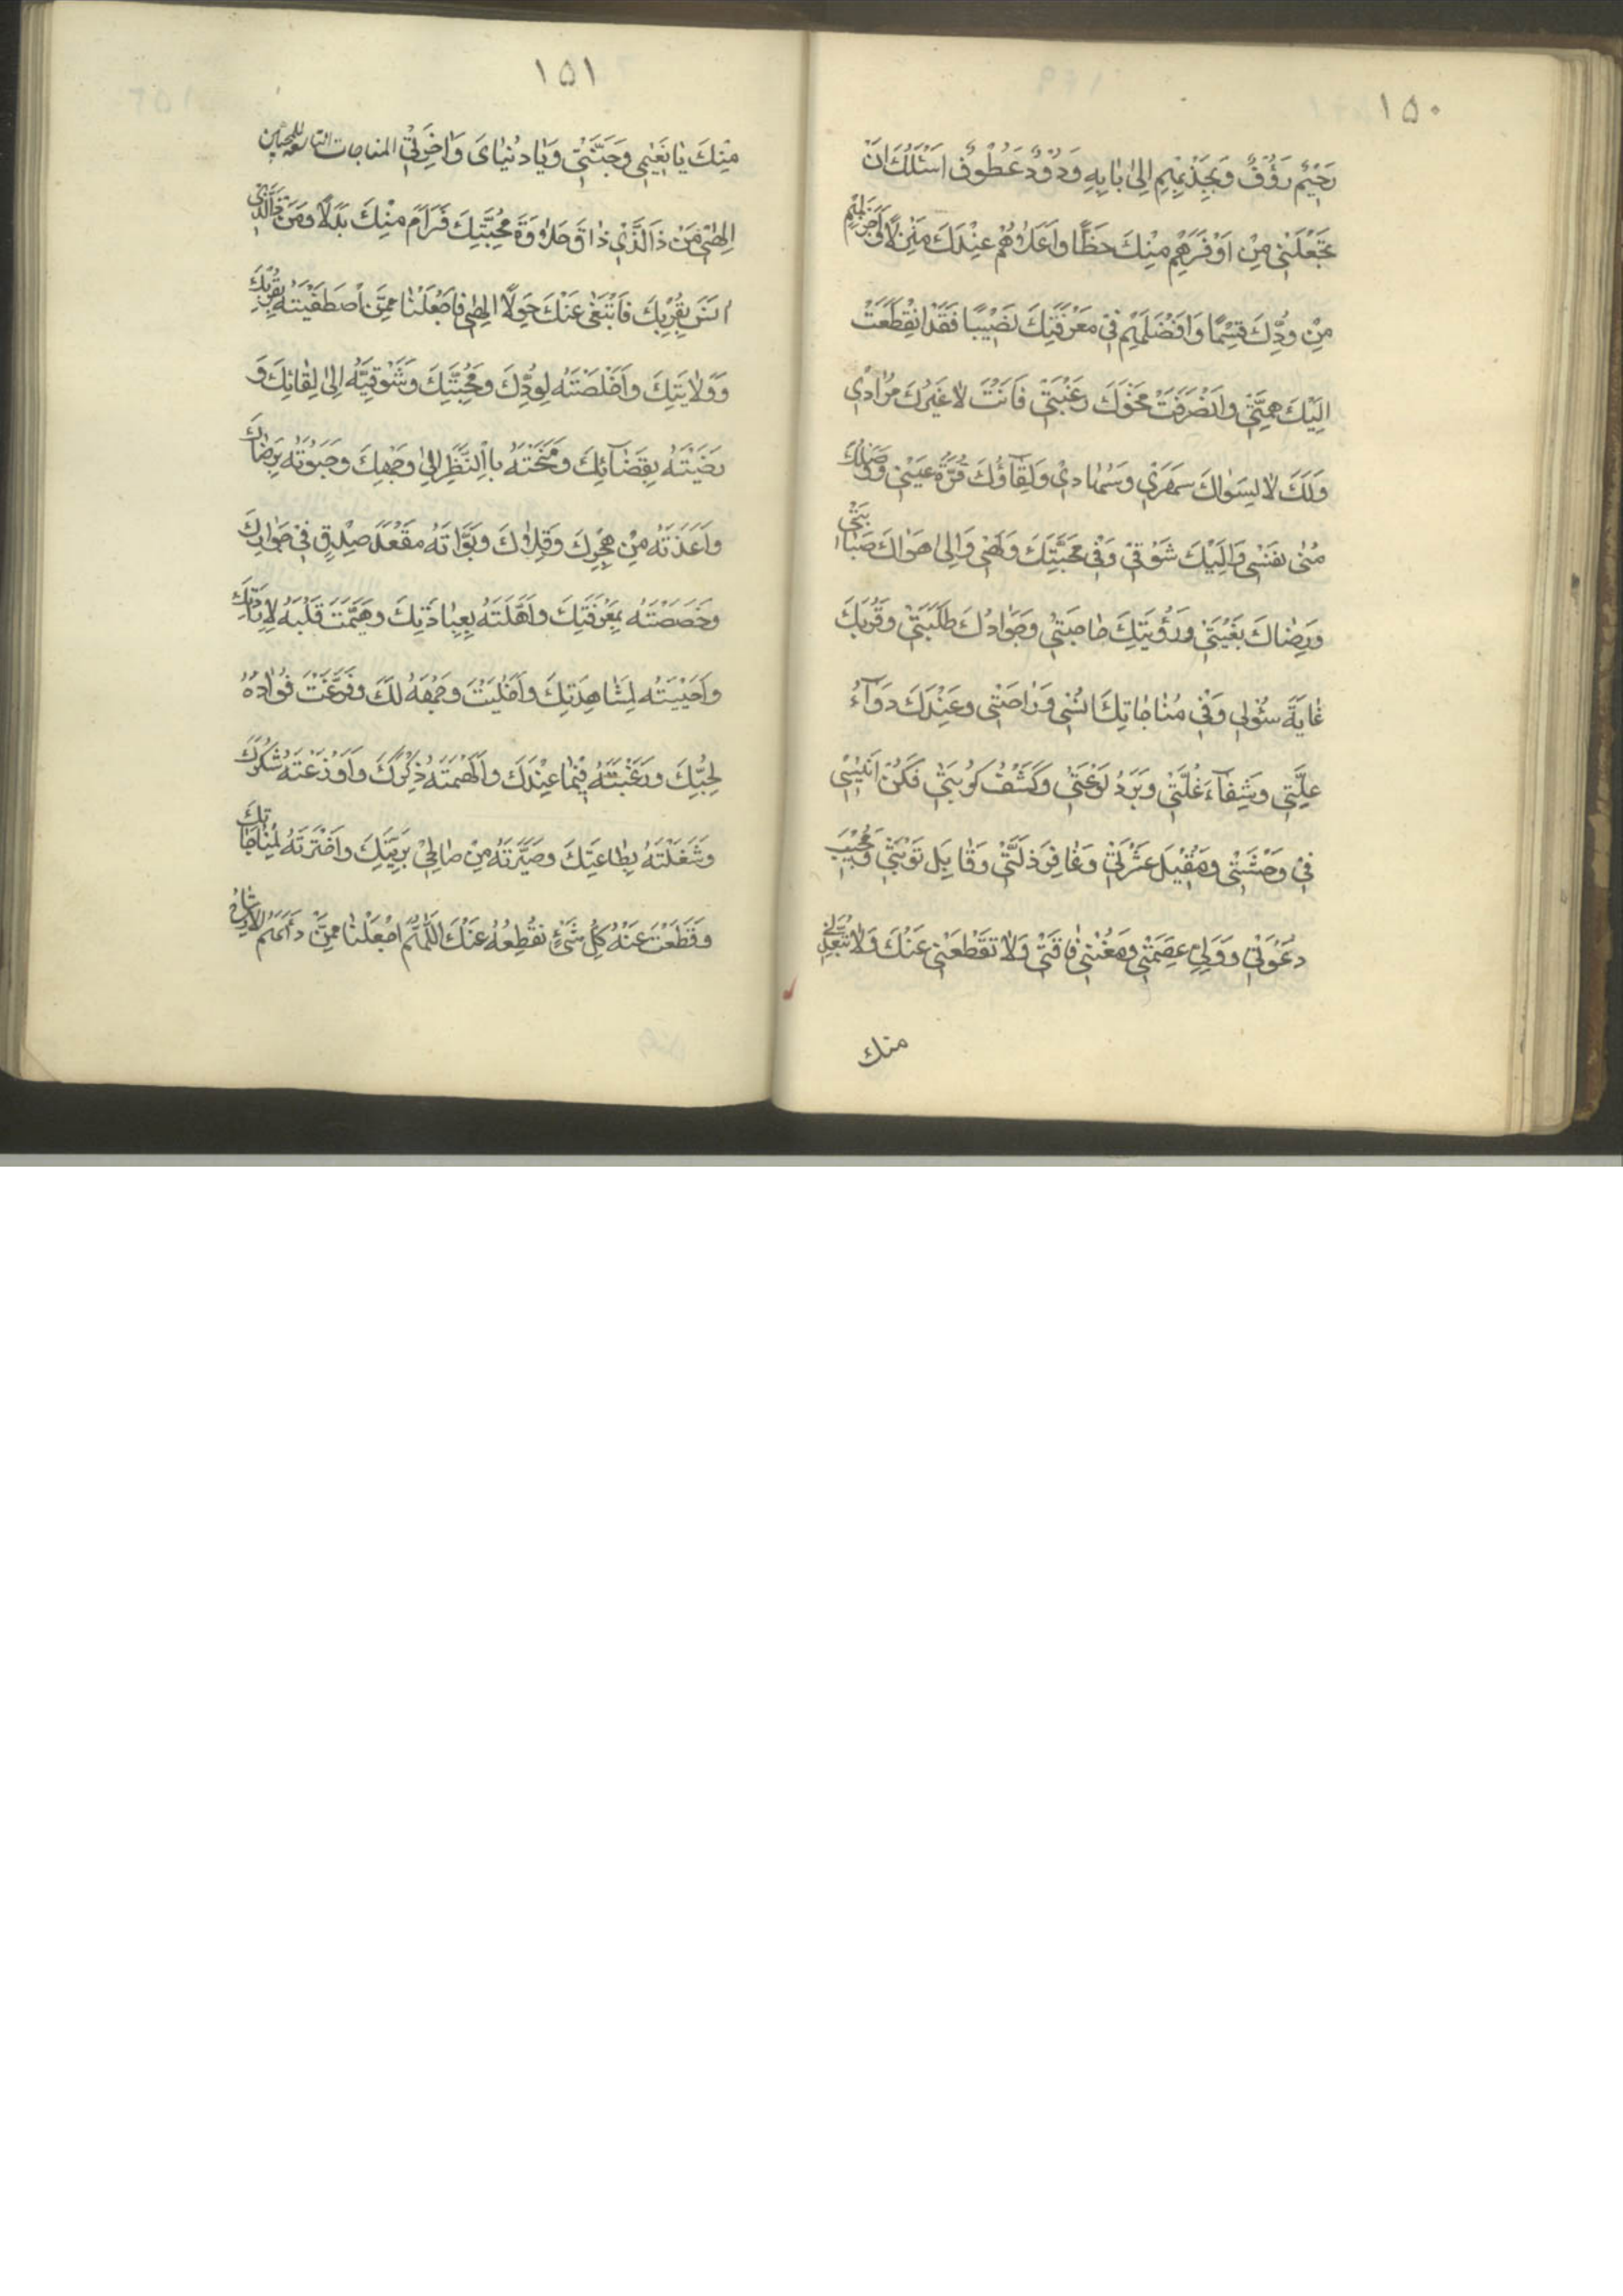 ١٥٠
رَحِیْمٌ رَؤُفٌ وَبِجَذْبِهِمْ اِلیٰ بٰابِهِ وَدُوْدٌ عَطُوْفٌ اَسْئَلُكَ اَنْ
تَجْعَلَنِیْ مِنْ اَوْفَرِهِمْ مِنْكَ حَظًّا وَاَعْلاٰهُمْ عِنْدَكَ مَنْزِلًا وَاَجْزَلِهِمْ
مِنْ وُدِّكَ قِسْمًا وَاَفْضَلِهِمْ فِیْ مَعْرِفَتِكَ نَصِیْبًا فَقَدْ انْقَطَعَتْ
اِلَیْكَ هِمَّتِیْ وَانْصَرَفَتْ نَحْوَكَ رَغْبَتِیْ فَاَنْتَ لاٰ غَیْرُكَ مُرٰادِیْ
وَلَكَ لاٰ لِسِوٰاكَ سَهَرِیْ وَسُهٰادِیْ وَلِقٰآؤُكَ قُرَّةُ عَیْنِیْ وَوَصْلُكَ
مُنیٰ نَفْسِیْ وَاِلَیْكَ شَوْقِیْ وَفِیْ مَحَبَّتِكَ وَلَهِیْ وَاِلیٰ هَوٰاكَ صَبٰابَتِیْ
وَرِضٰاكَ بُغْیَتِیْ وَرُؤْیَتِكَ حٰاجَتِیْ وَجِوٰارُكَ طَلِبَتِیْ وَقُرْبُكَ
غٰایَةُ سُؤْلِیْ وَفِیْ مُنٰاجٰاتِكَ اُنْسِیْ وَرٰاحَتِیْ وَعِنْدَكَ دَوٰآءُ
عِلَّتِیْ وَشِفٰآءَ غُلَّتِیْ وَبَرْدُ لَوْعَتِیْ وَكَشْفُ كُرْبَتِیْ فَكُنْ اَنِیْسِیْ
فِیْ وَحْشَتِیْ وَمُقِیْلَ عَثْرَتِیْ وَغٰافِرَ ذَلَّتِیْ وَقٰابِلَ تَوْبَتِیْ وَمُجِیْبَ
دَعْوَتِیْ وَوَلِیَّ عِصْمَتِیْ وَمُغْنِیَ فٰاقَتِیْ وَلاٰ تَقْطَعْنِیْ عَنْكَ وَلاٰ تُبْعِدْنِیْ
منك
١٥١
مِنْكَ یٰا نَعِیْمِیْ وَجَنَّتِیْ وَیٰا دُنْیٰایَ وَاٰخِرَتِیْ المناجات التاسعه للمحبین
اِلٰهِیْ مَنْ ذَا الَّذِیْ ذٰاقَ حَلاٰوَةَ مَحَبَّتِكَ فَرٰامَ مِنْكَ بَدَلًا وَمَنْ ذَا الَّذِیْ
اَنِسَ بِقُرْبِكَ فَابْتَغیٰ عَنْكَ حِوَلًا اِلٰهِیْ فَاجْعَلْنٰا مِمَّنِ اصْطَفَیْتَهُ بِقُرْبِكَ
وَوَلاٰیَتِكَ وَاَخْلَصْتَهُ لِوُدِّكَ وَمَحَبَّتِكَ وَشَوَّقْتَهُ اِلیٰ لِقٰائِكَ وَ
رَضَیْتَهُ بِقَضٰآئِكَ وَمَنَحْتَهُ بِالنَّظَرِ اِلیٰ وَجْهِكَ وَحَبَوْتَهُ بِرِضٰاكَ
وَاَعَذْتَهُ مِنْ هَجْرِكَ وَقِلاٰكَ وَبَوَّأْتَهُ مَقْعَدَ صِدْقٍ فِیْ جِوٰارِكَ
وَخَصَصْتَهُ بِمَعْرِفَتِكَ وَاَهَّلْتَهُ بِعِبٰادَتِكَ وَهَیَّمْتَ قَلْبَهُ لِاِرٰادَتِكَ
وَاجْتَبَیْتَهُ لِمُشٰاهَدَتِكَ وَاَخْلَیْتَ وَجْهَهُ لَكَ وَفَرَّغْتَ فُؤٰادَهُ
لِحُبِّكَ وَرَغَّبْتَهُ فِیْمٰا عِنْدَكَ وَاَلْهَمْتَهُ ذِكْرَكَ وَاَوْزَعْتَهُ شُكْرَكَ
وَشَغَلْتَهُ بِطٰاعَتِكَ وَصَیَّرْتَهُ مِنْ صٰالِحِیْ بَرِیَّتِكَ وَاخْتَرْتَهُ لِمُنٰاجٰاتِكَ
وَقَطَعْتَ عَنْهُ كُلَّ شَیْءٍ تَقْطَعُهُ عَنْكَ اَللّٰهُمَّ اجْعَلْنٰا مِمَّنْ دَأْبُهُمُ الْاِرْتِیٰاحُ